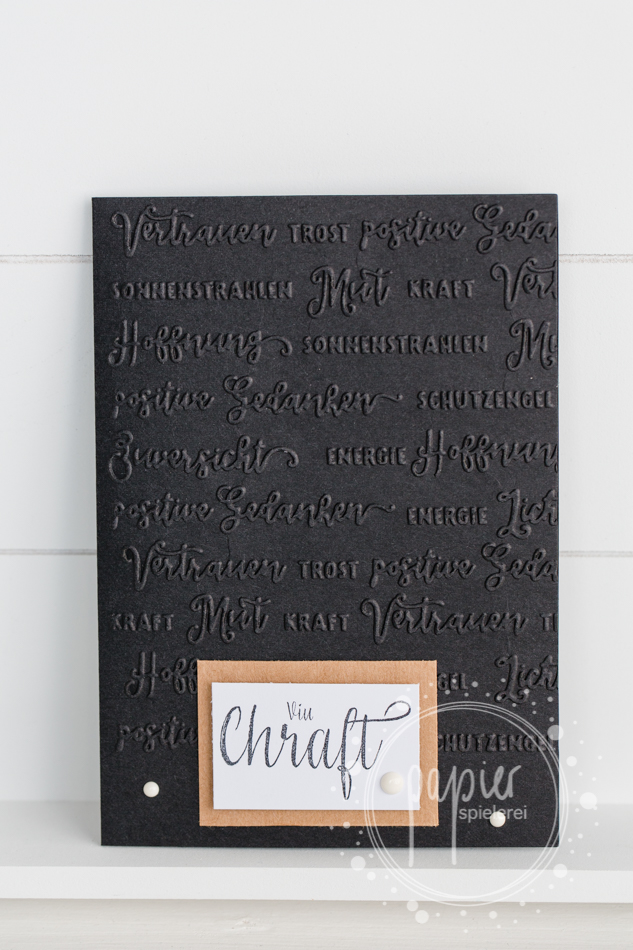 Vertrauen TROST positive Geda
SONNENSTRAHLEN Mut KRAFT Vert
Hoffnung SONNENSTRAHLEN Mu
positive Gedanken SCHUTZENGEL
Zuversicht ENERGIE Hoffnun
positive Gedanken ENERGIE Licht
Vertrauen TROST positive Geda
KRAFT Mut KRAFT Vertrauen T
Hoff GEL Licht
positiv SCHUTZENGEL
Viu
Chraft
papier
spielerei